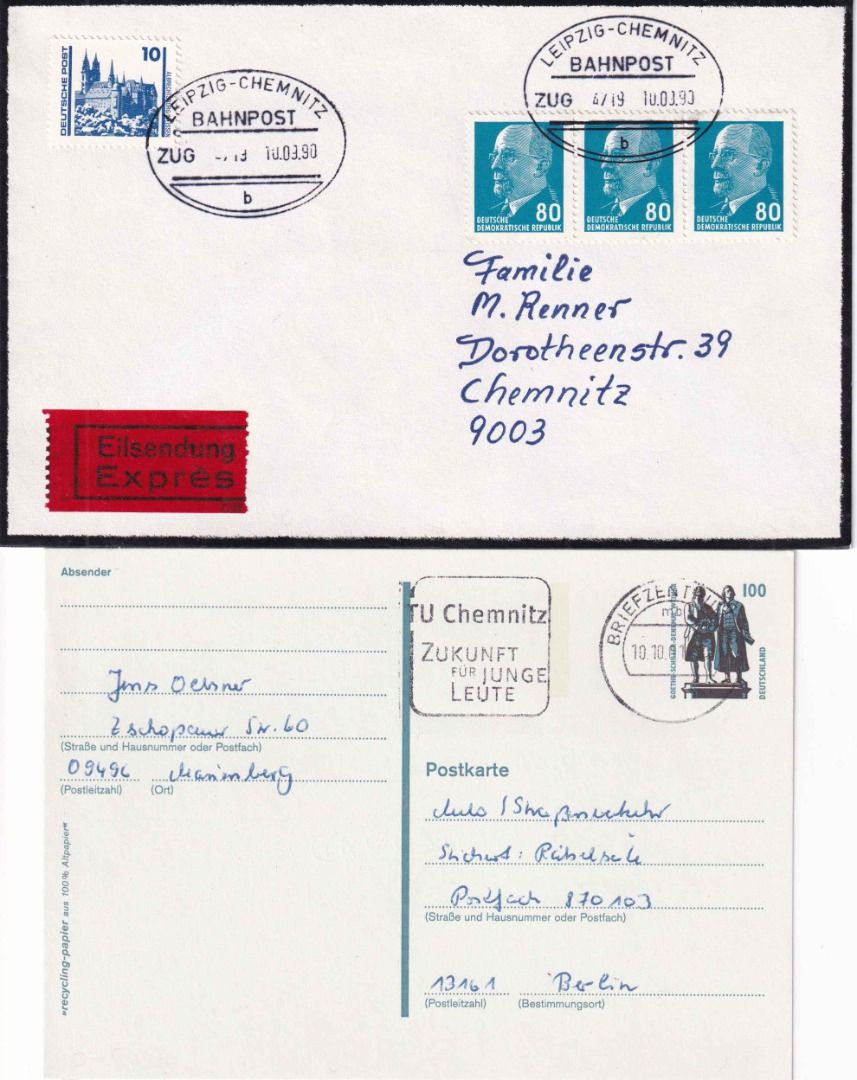 DEUTSCHE POST
10
LEIPZIG-CHEMNITZ
BAHNPOST
ZUG 10.09.90
b
LEIPZIG-CHEMNITZ
BAHNPOST
ZUG 4719 10.09.90
b
80
DEUTSCHE
DEMOKRATISCHE REPUBLIK
80
DEUTSCHE
DEMOKRATISCHE REPUBLIK
80
DEUTSCHE
DEMOKRATISCHE REPUBLIK
Familie
M. Renner
Dorotheenstr. 39
Chemnitz
9003
Eilsendung
Exprès
Absender
Jens Oehsner
Zschopauer Str. 60
(Straße und Hausnummer oder Postfach)
09496 Marienberg
(Postleitzahl) (Ort)
»recycling-papier aus 100% Altpapier«
TU Chemnitz
ZUKUNFT
FÜR JUNGE
LEUTE
BRIEFZENTRUM
mb
10.10.01
100
GOETHE-SCHILLER-DENKMAL
DEUTSCHLAND
Postkarte
Auto / Straßenverkehr
Stichwort: Rätselseite
Postfach 870103
(Straße und Hausnummer oder Postfach)
13161 Berlin
(Postleitzahl) (Bestimmungsort)